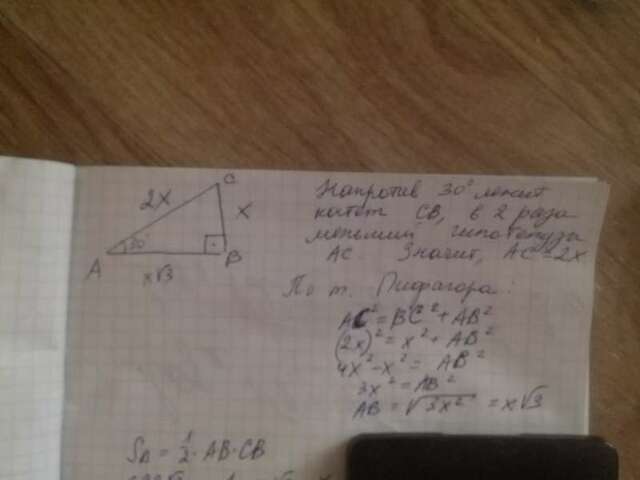 C
2x
x
30°
A
B
x√3
Напротив 30° лежит
катет CB, в 2 раза
меньший гипотенузы
AC. Значит, AC = 2x
По т. Пифагора:
AC² = BC² + AB²
(2x)² = x² + AB²
4x² - x² = AB²
3x² = AB²
AB = √3x² = x√3
S△ = 1/2 · AB · CB